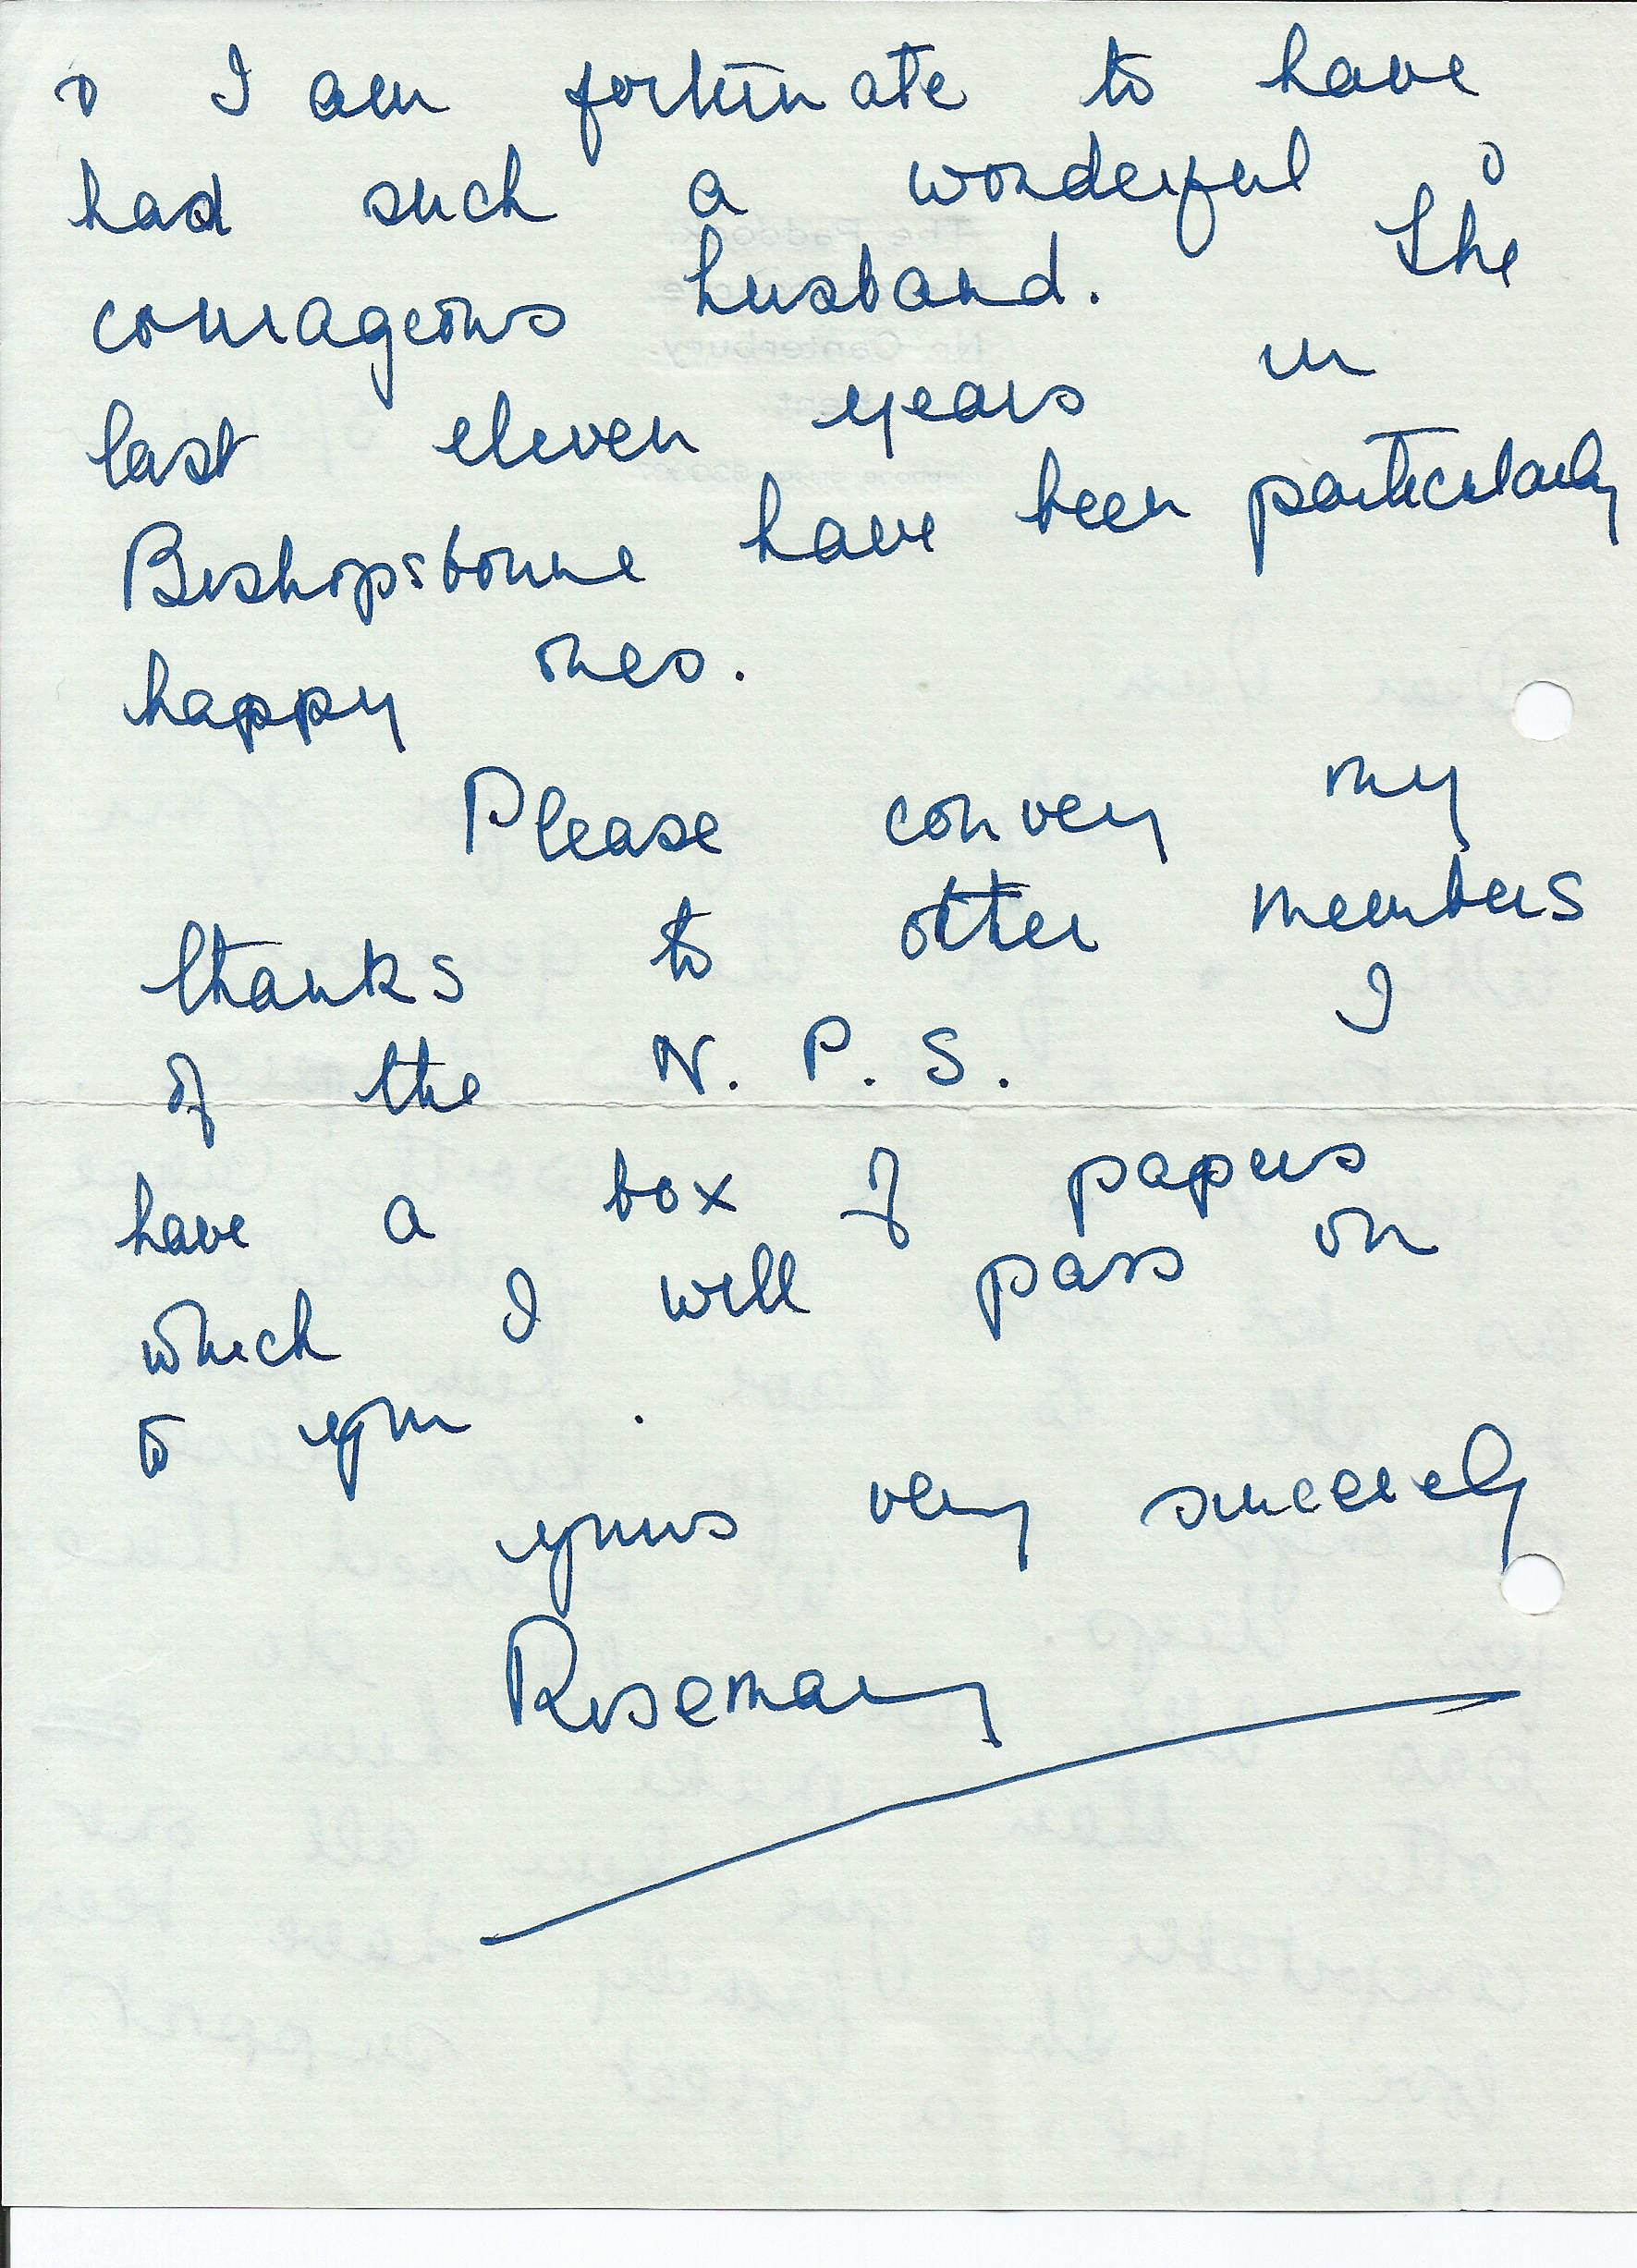 & I am fortunate to have
had such a wonderful &
courageous husband. The
last eleven years in
Bishopsbourne have been particularly
happy ones.
Please convey my
thanks to other members
of the N. P. S. I
have a box of papers
which I will pass on
to you.
yours very sincerely
Rosemary